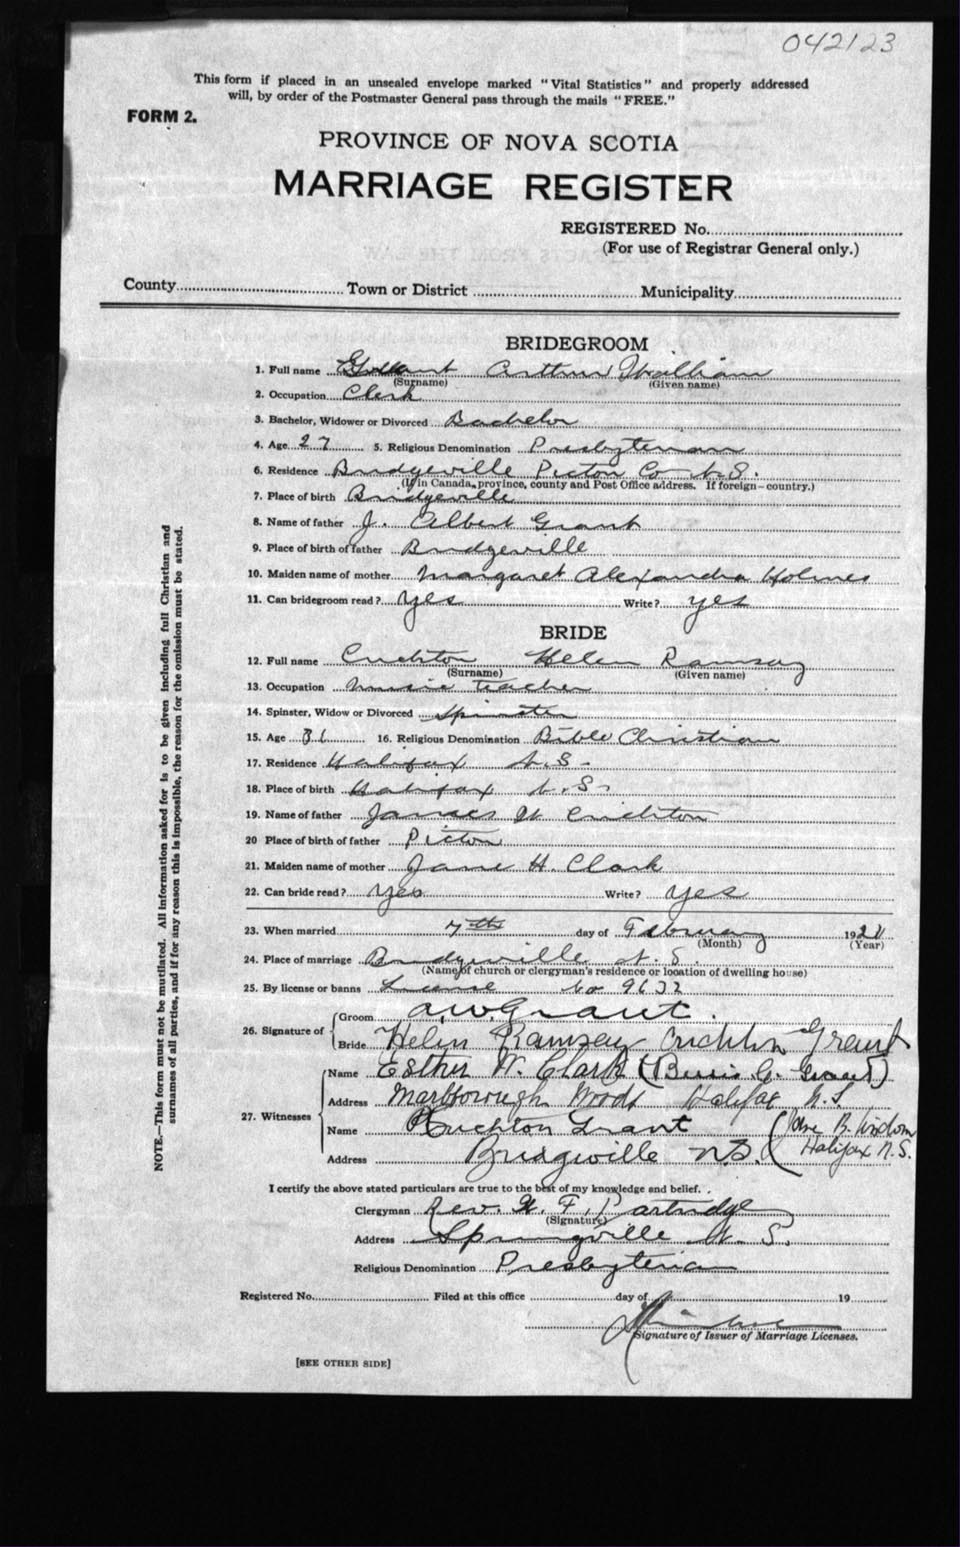 042123
This form if placed in an unsealed envelope marked "Vital Statistics" and properly addressed
will, by order of the Postmaster General pass through the mails "FREE."
FORM 2.
PROVINCE OF NOVA SCOTIA
MARRIAGE REGISTER
REGISTERED No.
(For use of Registrar General only.)
County Town or District Municipality
BRIDEGROOM
1. Full name Grant Arthur William
(Surname) (Given name)
2. Occupation Clerk
3. Bachelor, Widower or Divorced Bachelor
4. Age 27 5. Religious Denomination Presbyterian
6. Residence Bridgeville Pictou Co N.S.
(If in Canada, province, county and Post Office address. If foreign—country.)
7. Place of birth Bridgeville
8. Name of father J. Albert Grant
9. Place of birth of father Bridgeville
10. Maiden name of mother Margaret Alexandra Holmes
11. Can bridegroom read? yes Write? yes
BRIDE
12. Full name Crichton Helen Ramsay
(Surname) (Given name)
13. Occupation Music teacher
14. Spinster, Widow or Divorced Spinster
15. Age 31 16. Religious Denomination Bible Christian
17. Residence Halifax N.S.
18. Place of birth Halifax N.S.
19. Name of father James Crichton
20 Place of birth of father Pictou
21. Maiden name of mother Jane H. Clark
22. Can bride read? yes Write? yes
23. When married 7th day of February 192
(Month) (Year)
24. Place of marriage Bridgeville N.S.
(Name of church or clergyman's residence or location of dwelling house)
25. By license or banns License No 9632
26. Signature of Groom A.W. Grant.
Bride Helen Ramsay Crichton Grant
27. Witnesses Name Esther W. Clark (Grant)
Address Marlborough Woods Halifax N.S.
Name Crichton Grant
Address Bridgeville N.S. Halifax N.S.
I certify the above stated particulars are true to the best of my knowledge and belief.
Clergyman Rev. F. Partridge
(Signature)
Address Springville N.S.
Religious Denomination Presbyterian
Registered No. Filed at this office day of 19
Signature of Issuer of Marriage Licenses.
[SEE OTHER SIDE]
NOTE.—This form must not be mutilated. All information asked for is to be given including full Christian and
surnames of all parties, and if for any reason this is impossible, the reason for the omission must be stated.